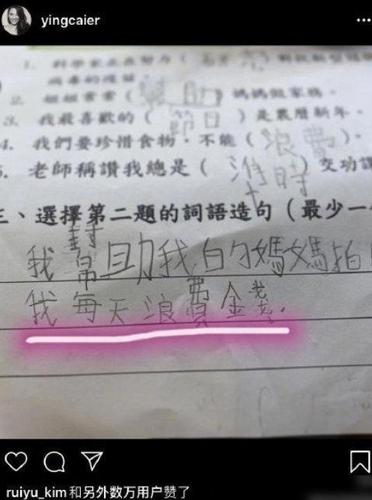 yingcaier
1. 科學家正在努力(
2. 姐姐常常(幫助)媽媽做家務。
3. 我最喜歡的(節日)是農曆新年。
4. 我們要珍惜食物,不能(浪費)。
5. 老師稱讚我總是(準時)交功課
三、選擇第二題的詞語造句(最少一
我幫助我白勺媽媽拍
我每天浪費金錢。
ruiyu_kim和另外数万用户赞了